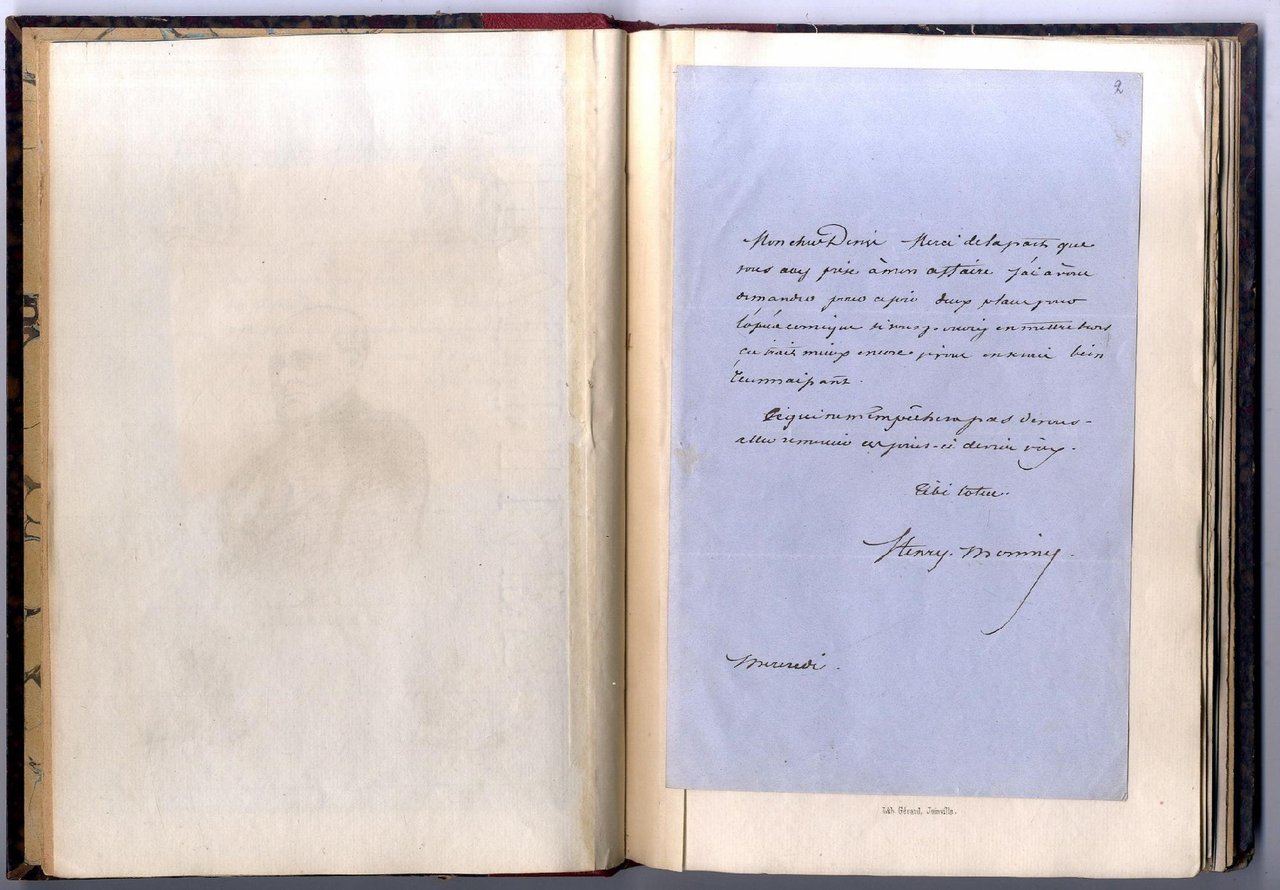 2
Mon cher Denis Merci de la part que
vous avez prise à mon affaire J'ai à vous
demander pour ce soir deux places pour
l'opéra comique si vous pouviez en mettre trois
ce serait mieux encore je vous en serai bien
reconnaissant.
Ce qui ne m'empêchera pas de vous
aller remercier ces jours-ci
Tibi totus.
Henry Monnier.
Mercredi.
Lith. Gérard, Joinville.